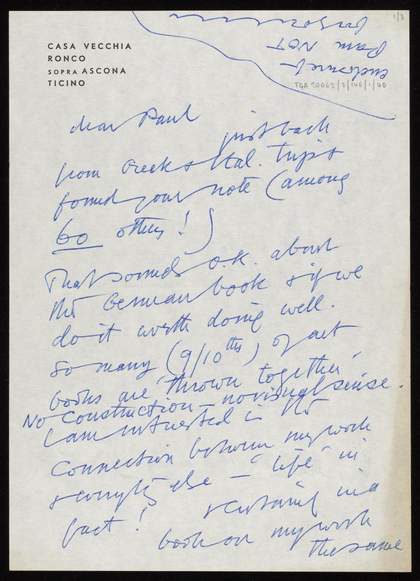 1/3
CASA VECCHIA
RONCO
SOPRA ASCONA
TICINO
am NOT
TGA 200
dear Paul
just back
from Greek & Ital. trips
found your note (among
60 others!)
That sounds o.k. about
the German book & if we
do it worth doing well.
So many (9/10ths) of art
books are 'thrown together'
No construction — no visual sense.
I am interested in the
connection between my work
& everything else — 'life' in
fact! & certainly in a
book on my work
the same